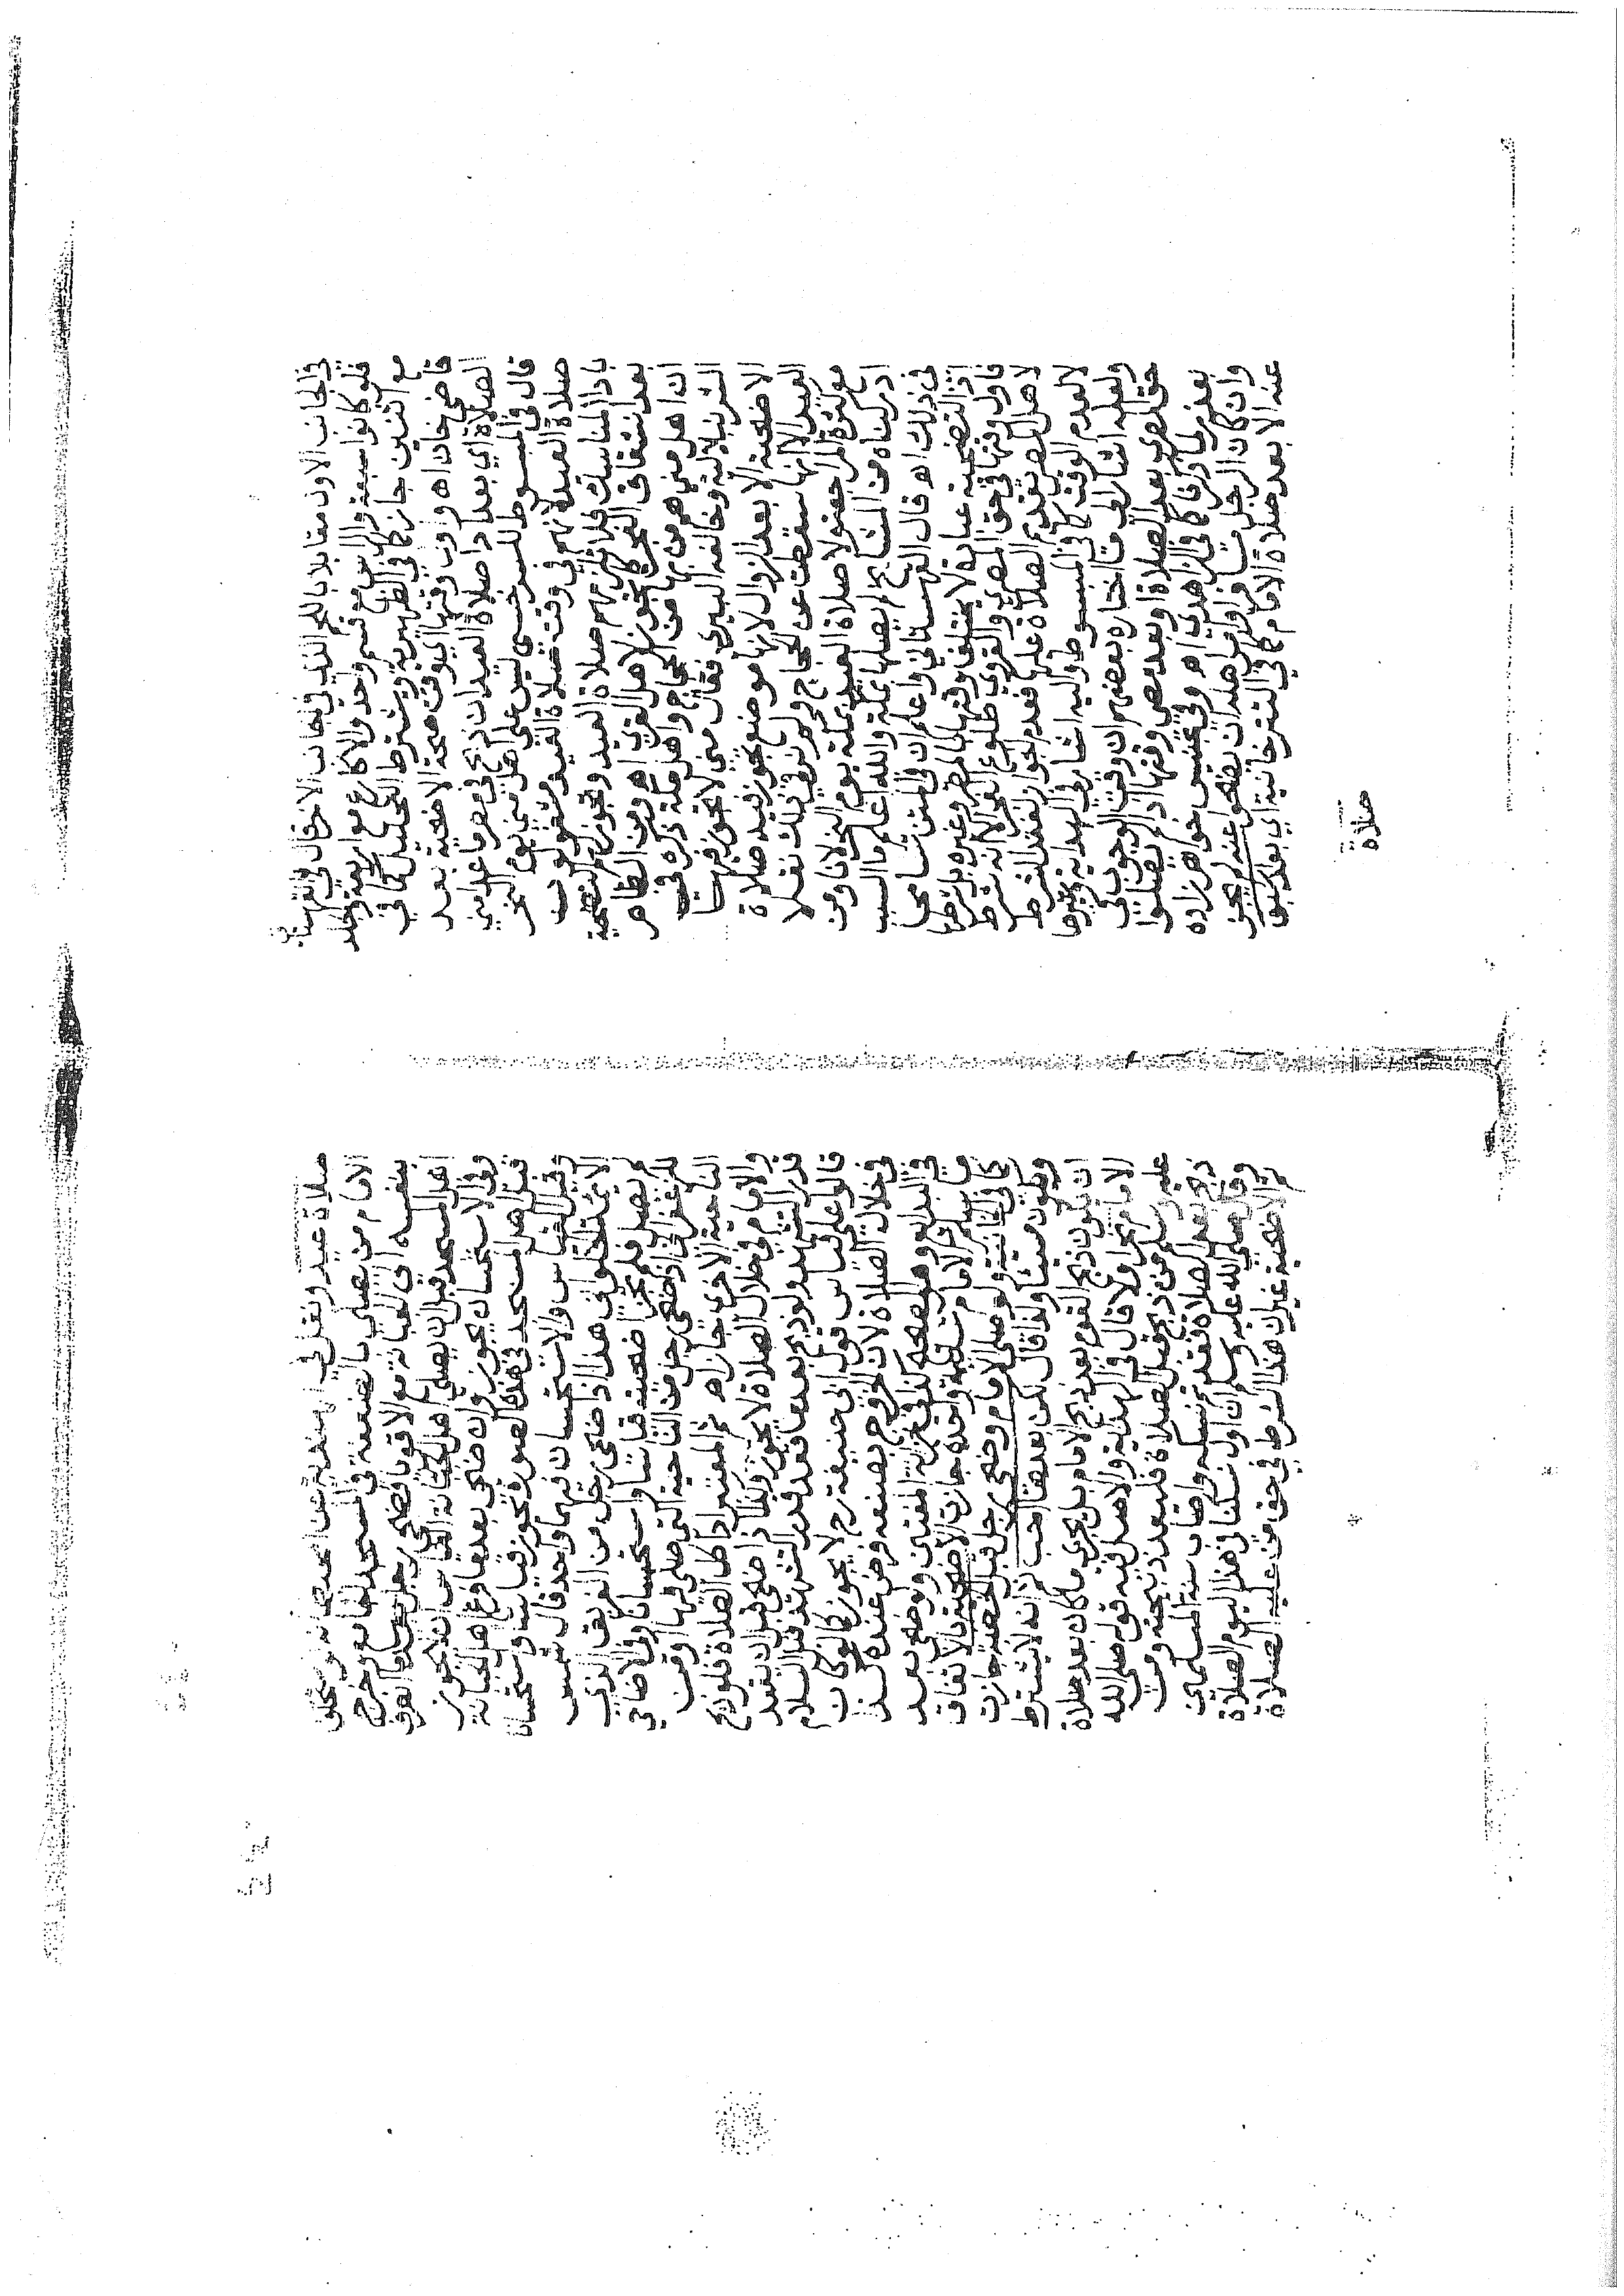 في الجانب الاول متقابلا بالجز الذي في بجانب الاخر قال في القهستاني
فلو كانوا سبعة والراس مع قسم واحد والاكارع مع اربعة والجلد
مع اثنين جاز كما في الظهيرية ويشترط التحليل كما في
قاضي خان اه واول وقتها اي وقت صحة الاضحية بعد
الصلاة اي بعد اداء صلاة العيد ان ذبح في مصر ما عدا مني
قال في المبسوط للسرخسي ليس على اهل مني يوم النحر
صلاة العيد لانهم في وقت صلاة العيد مشغولون
باداء المناسك فلا تلزمهم صلاة العيد وتجوز لهم التضحية
بعد انشقاق الفجر كما يجوز لاهل القرى اه ومن الظاهر
ان اهل مني هم من بها من الحجاج واهل مكة ذكره في
الشرنبلالية وخالفه البيري فقال مني لا تجوز فيها
الاضحية الا بعد الزوال لانها موضع يجوز فيه صلاة
العيد الا انها سقطت عن الحجاج ولم نر في ذلك نقلا
مع كثرة المراجعة ولا صلاة العيد بمكة يوم النحر لانا ومن
ادركناه من المشايخ لم يصلها بمكة والله اعلم ما السبب
في ذلك اه قال القهستاني واعلم ان في المتن تسامحا
اذ التضحية عبادة لا يختلف وقتها بالمصر وغيره بل شرطها
فاول وقتها في حق المصري والقروي طلوع الفجر الا انه شرط
لاهل المصر تقديم الصلاة عليها فعدم الجواز لفقد الشرط
لا لعدم الوقت كما في المبسوط واليه اشار في الهداية وغيرها
ولعله اشار الى ما اختاره بعضهم ان وقت الوجوب في
حق المصري بعد الصلاة او بعد مضي وقتها ان لم يصلوا
بعذر كما ذكره الزاهدي اه وفي تجنيس خواهر زاده
وان كان الرجل مسافرا وامر اهله ان يضحوا عنه لم يجز
عنه الا بعد صلاة الامام كما في التترخانية اي بعد سبق
صلاة
صلاة عيد ونقل في الهندية عن المحيط انه لو استخلف
الامام من يصلي بالضعفة في المسجد الجامع وخرج
بنفسه الى الجبانة مع الاقويا فضحى رجل بعدما انصرف
اهل المسجد قبل ان يصلي اهل الجبانة القياس ان لا يجوز
وفي الاستحسان يجوز وان ضحى بعدما فرغ اهل الجبانة
قبل اهل المسجد في هذه الصورة يجوز قياسا واستحسانا
وقيل القياس والاستحسان فيهما واحد قال شمس
الائمة الحلواني هذا اذا ضحى رجل من الفريق الذي
لم يصل فلم تجز اضحيته قياسا واستحسانا وفي الاضاحي
للزعفراني اذا ضحى رجل من الناحية التي صلي فيها او من
الناحية الاخرى جاز اه ثم المعتبر اداء كل الصلاة فلو ذبح
والامام في خلال الصلاة لا يجوز وكذا اذا ضحى قبل ان يقعد
قدر التشهد ولو ذبح بعدما قعد قدر التشهد قبل السلام
قالوا على قياس قول ابي حنيفة رح لا يجوز كما لو كان
في خلال الصلاة لان الخروج بصنعه فرض عنده كذا
في البدايع وهو الصحيح كذا في خزانة المفتين ولو ضحى بعد
ما سلم الامام تسليمة واحدة جازت الاضحية بالاتفاق
كما في الخانية ولو صلى الامام وضحى رجل قبل الخطبة جازت
ويكون مسيئا ولذا قال لكن بعدها احب ثم انه لا يشترط
ان يكون ذبح القوم بعد ذبح الامام بل يجزي ما كان بعد صلاة
الامام نحر اولا قال في الهداية والاصل فيه قوله صلى الله
عليه وسلم من ذبح قبل الصلاة فليعد ذبيحته ومن
ذبح بعد الصلاة فقد تم نسكه واصاب سنة المسلمين
وقال صلى الله عليه وسلم ان اول نسكنا في هذا اليوم الصلاة
ثم الاضحية غير ان هذا الشرط في حق من عليه الصلاة